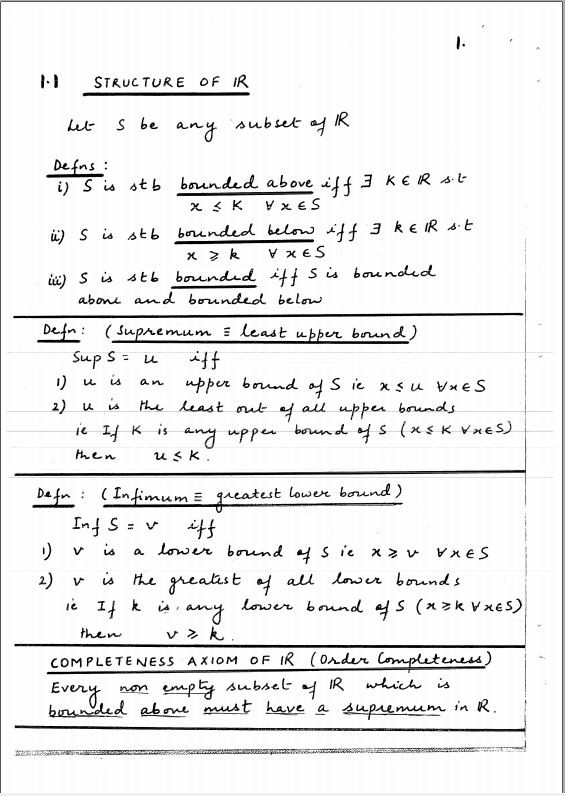 1.
1.1 STRUCTURE OF ℝ
Let S be any subset of ℝ
Defns :
i) S is stb bounded above iff ∃ K ∈ ℝ s.t
x ≤ K ∀ x ∈ S
ii) S is stb bounded below iff ∃ k ∈ ℝ s.t
x ≥ k ∀ x ∈ S
iii) S is stb bounded iff S is bounded
above and bounded below
Defn : (Supremum ≡ least upper bound)
Sup S = u iff
1) u is an upper bound of S ie x ≤ u ∀x ∈ S
2) u is the least out of all upper bounds
ie If K is any upper bound of S (x ≤ K ∀x ∈ S)
then u ≤ K.
Defn : (Infimum ≡ greatest lower bound)
Inf S = v iff
1) v is a lower bound of S ie x ≥ v ∀x ∈ S
2) v is the greatest of all lower bounds
ie If k is any lower bound of S (x ≥ k ∀x ∈ S)
then v ≥ k.
COMPLETENESS AXIOM OF ℝ (Order Completeness)
Every non empty subset of ℝ which is
bounded above must have a supremum in ℝ.